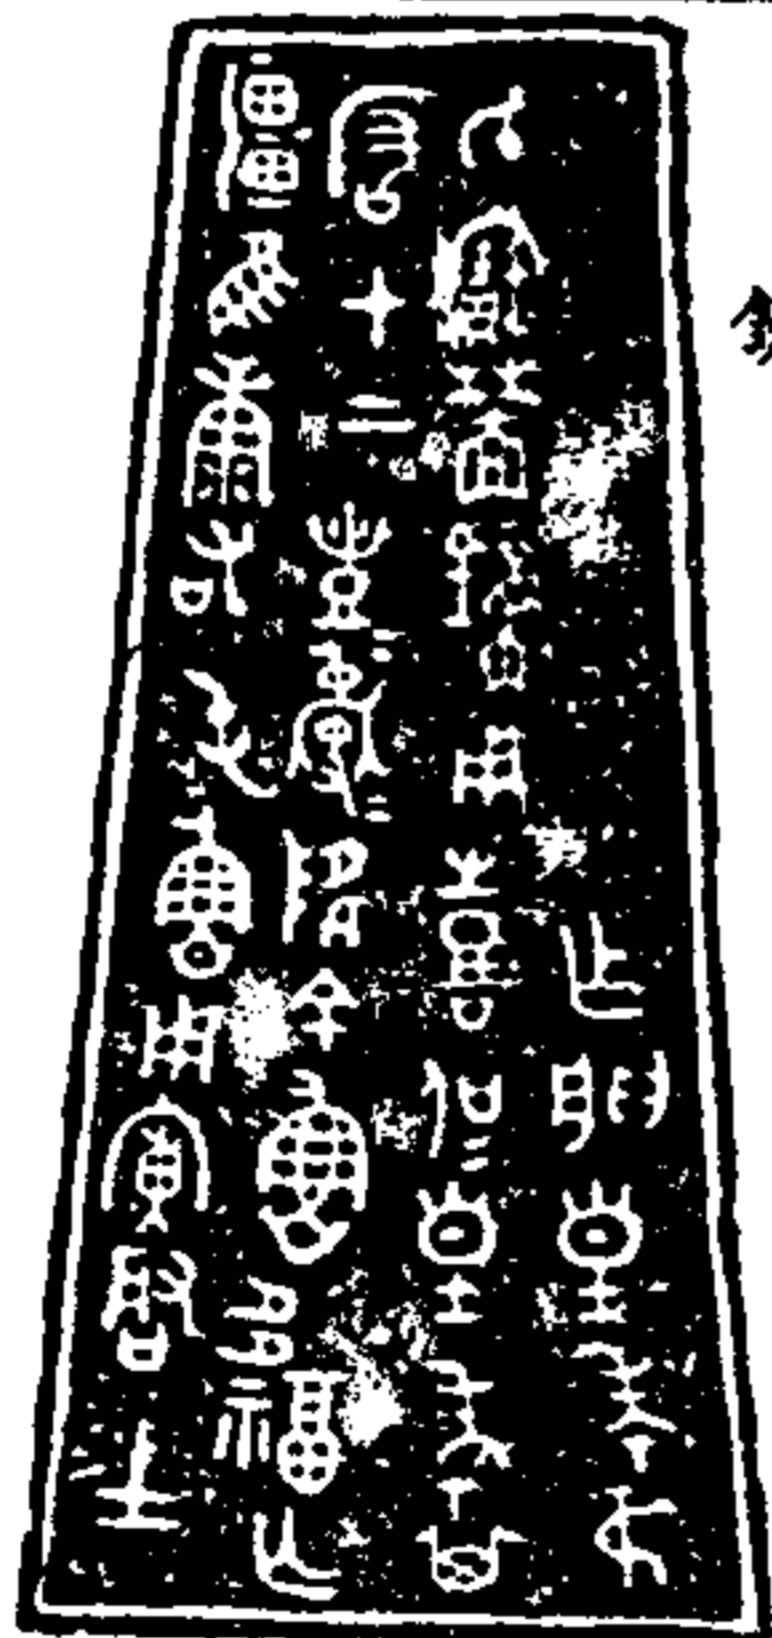 乍朕皇考弔
氏寶䔭鐘用喜侃皇考其
嚴才上豐=𣀈=降余魯多福亡
彊隹康右屯魯用廣啓士